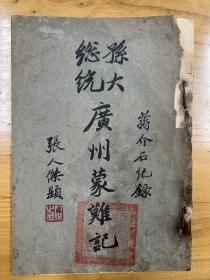 孫大
總統
廣州蒙難記
蔣介石紀錄
張人傑題